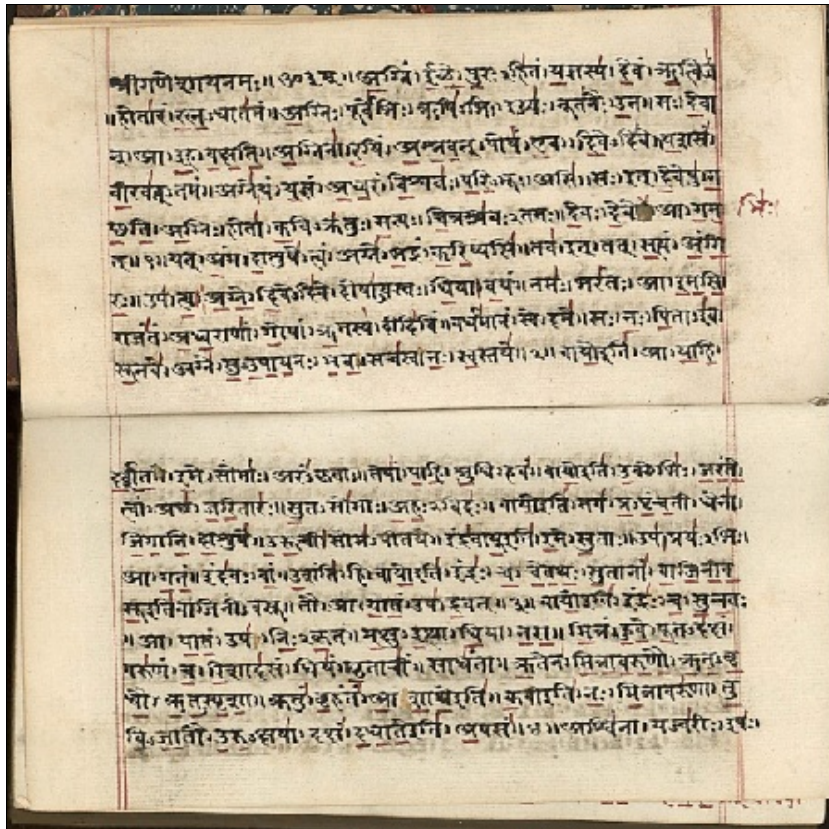 श्रीगणेशायनमः॥ॐ३म्॥अग्निं।ईळे।पुरःऽहितं।यज्ञस्य।देवं।ऋत्विजं
॥होतारं।रत्नऽधातमं॥अग्निः।पूर्वेभिः।ऋषिऽभिः।ईड्यः।नूतनैः।उत॥सः।देवा
न्।आ।इह।वक्षति॥अग्निना।रयिं।अश्नवत्।पोषं।एव।दिवेऽदिवे॥यशसं
वीरवत्ऽतमं॥अग्ने।यं।यज्ञं।अध्वरं।विश्वतः।परिऽभूः।असि॥सः।इत्।देवेषु।ग
च्छति।अग्निः।होता।कविऽक्रतुः।सत्यः।चित्रश्रवःऽतमः॥देवः।देवे।आ।गम
भिः।
त्॥१॥यत्।अंग।दाशुषे।त्वं।अग्ने।भद्रं।करिष्यसि॥तव।इत्।तत्।सत्यं।अंगि
रः॥उप।त्वा।अग्ने।दिवेऽदिवे।दोषाऽवस्तः।धिया।वयं॥नमः।भरंतः।आ।इमसि
राजंतं।अध्वराणां।गोपां।ऋतस्य।दीदिविं॥वर्धमानं।स्वे।दमे॥सः।नः।पिताऽइव
सूनवे।अग्ने।सुऽउपायनः।भव॥सचस्व।नः।स्वस्तये॥२॥वायोइति।आ।याहि
दर्शत।इमे।सोमाः।अरंऽकृताः॥तेषां।पाहि।श्रुधि।हवं॥वायोइति।उक्थेभिः।जरंते
त्वां।अच्छ।जरितारः॥सुतऽसोमाः।अहःऽविदः॥वायोइति।तव।प्रऽपृंचती।धेना
जिगाति।दाशुषे॥उरूची।सोमऽपीतये॥इंद्रवायूइति।इमे।सुताः॥उप।प्रयःऽभिः।
आ।गतं॥इंदवः।वां।उशंति।हि॥वायोइति।इंद्रः।च।चेतथः।सुतानां।वाजिनीव
सूइतिवाजिनीऽवसू॥तौ।आ।यातं।उप।द्रवत्॥३॥वायोइति।इंद्रः।च।सुन्वतः
॥आ।यातं।उप।निःऽकृतं॥मक्षु।इत्था।धिया।नरा॥मित्रं।हुवे।पूतऽदक्षं
वरुणं।च।रिशादसं॥धियं।घृताचीं।साधंता॥ऋतेन।मित्रावरुणौ।ऋतऽवृ
धौ।ऋतऽस्पृशा॥क्रतुं।बृहंतं।आशाथेइति॥कवीइति।नः।मित्रावरुणा।तु
विऽजातौ।उरुऽक्षया॥दक्षं।दधातेइति।अपसं॥४॥अश्विना।यज्वरीः।इषः।